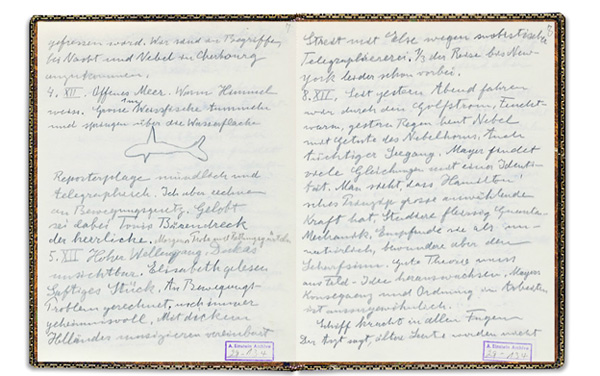 7
gefressen ward. Wir sind im Begriffe,
bei Nacht und Nebel in Cherbourg
anzukommen.
4. XII. Offenes Meer. Warm Himmel
weiss. Grosse Weissfische tummeln
und springen über die Wasserfläche
Reporterplage mündlich und
telegraphisch. Ich aber rechnen
an Bewegungsgesetz. Gelobt
sei dabei Tonis Bärendreck
der herrliche.
5. XII Hoher Wellengang. Dukas
unsichtbar. Elisabeth gelesen
Saftiges Stück. An Bewegungs-
Problem gerechnet, noch immer
geheimnisvoll. Mit dickem
Holländer musizieren vereinbart
A. Einstein Archive
29-134
8
Streit mit Else wegen
Telegraphiererei. ½ der Reise bis New-
york leider schon vorbei.
8. XII. Seit gestern Abend fahren
wir durch den Golfstrom, Feucht-
warm, gestern Regen heut Nebel
mit Getute des Nebelhorns. Auch
tüchtiger Seegang. Mayer findet
viele Gleichungen mit einer Identi-
tät. Man sieht, dass Hamilton'
sches Prinzip grosse auswählende
Kraft hat. Studiere fleissig Quanten-
Mechanik. Empfinde sie als un-
natürlich, bewundere aber den
Scharfsinn. Gute Theorie muss
aus Feld-Idee herauswachsen. Mayers
Konsequenz und Ordnung im Arbeiten
ist aussergewöhnlich.
Schiff kracht in allen Fugen
Der Arzt sagt, ältere Leute würden meist
A. Einstein Archive
29-134